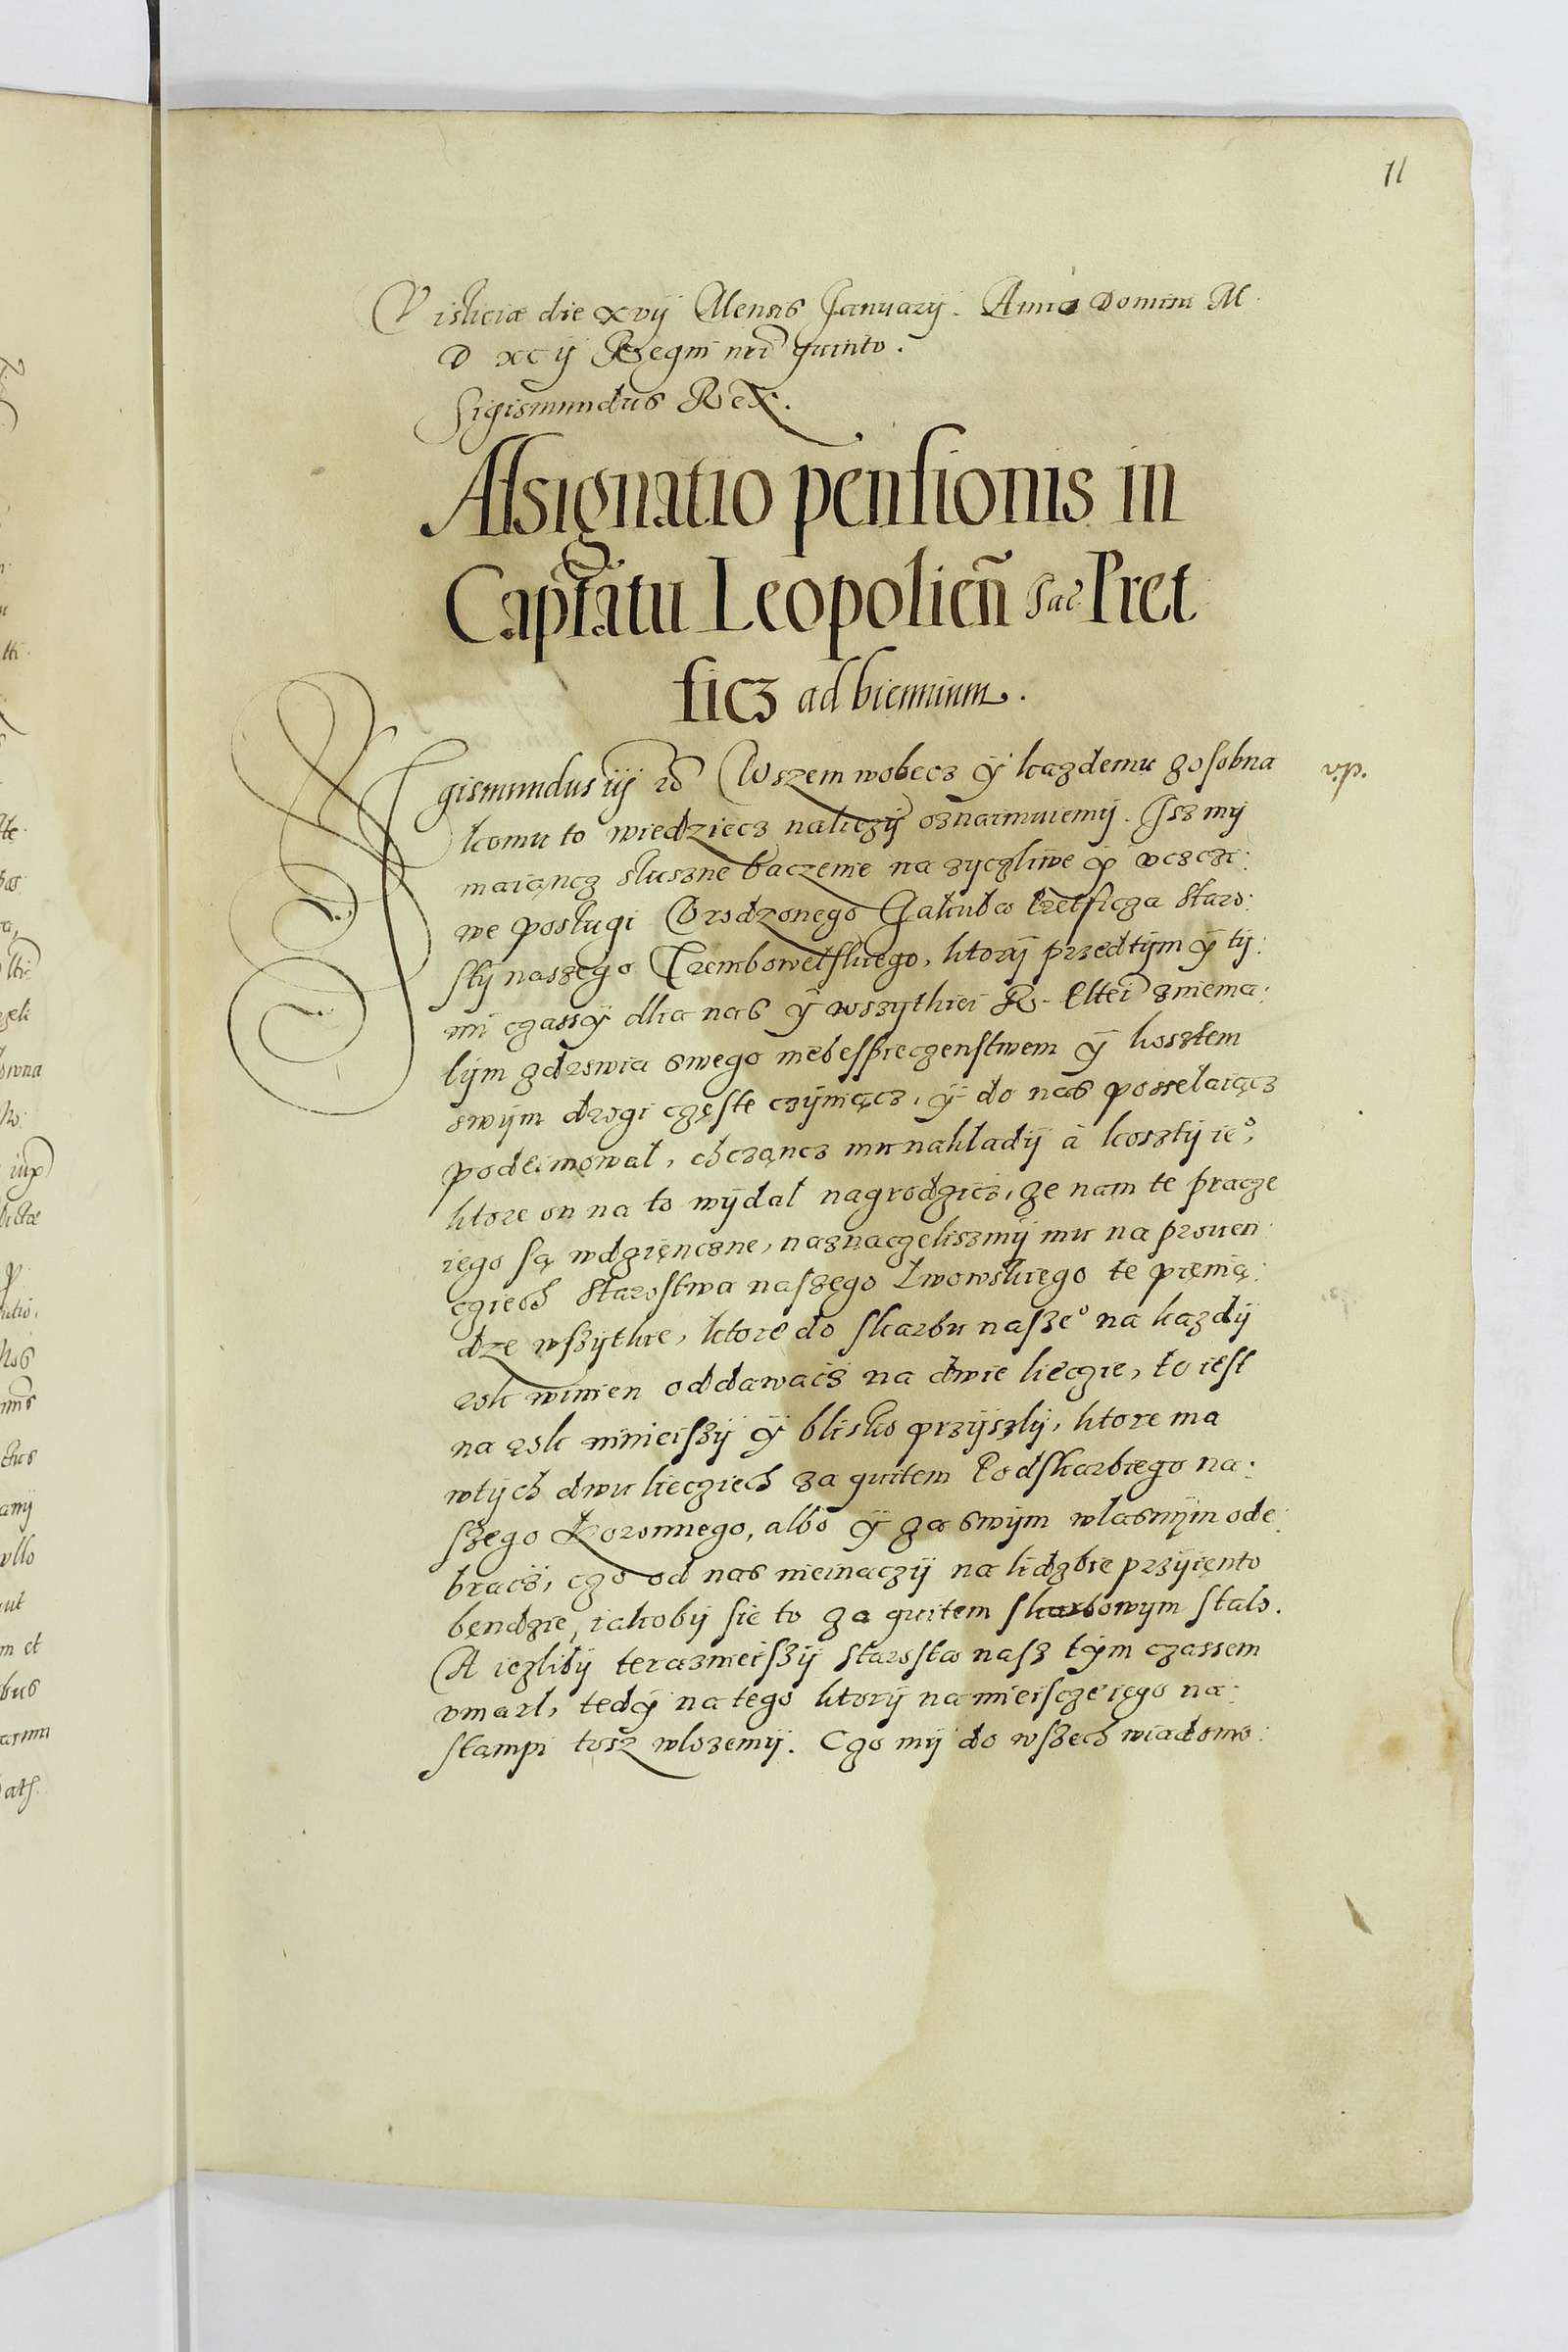 11
Visliciæ die xvij Mensis Januarij. Anno Domini M
D xcij Regni nri quinto.
Sigismundus Rex.
Assignatio pensionis in
Capitātu Leopolien̄ Jac Pret
ficz ad biennium.
Sigismundus iij etc Wszem wobecz ÿ kazdemu zosobna
v.p.
komu to wiedziecz nalezÿ oznaimuiemÿ. Isz mÿ
maiąncz słuszne baczenie na zyczliwe ÿ vczci:
we posługi Vrodzonego Jakuba Pretficza Staro:
stÿ naszego Trembowelskiego, ktorÿ przedtÿm ÿ tÿ:
mi czassÿ dlia nas ÿ wszytkiei R. Pltei zniema:
lÿm zdrowia swego niebespieczenstwem ÿ kosztem
swÿm drogi częste czÿniącz, ÿ do nas posselaiącz
podeimował, chcząncz mu nakladÿ à kosztÿ ie°,
ktore on na to wÿdal nagrodzicz, ze nam te pracze
iego są wdzięnczne, naznaczeliszmÿ mu na prouen
cziech Starostwa naszego Lwowskiego te pienią:
dze wszÿtkie, ktore do skarbu nasze° na kazdÿ
rok winien oddawacz na dwie lieczie, to iest
na rok ninieiszÿ ÿ blisko przÿszlÿ, ktore ma
wtÿch dwu liecziech za quitem Podskarbiego na:
szego Koronnego, albo ÿ za swÿm wlasnÿm ode:
bracz, czo od nas nieinaczÿ na lidzbie przÿięnto
bęndzie, iakobÿ sie to za quitem skarbowym stalo.
A iezlibÿ teraznieiszÿ Starosta nasz tÿm czassem
vmarl, tedÿ na tego ktorÿ na mieiscze iego na:
stampi tosz wlozemÿ. Czo mÿ do wszech wiadomo: